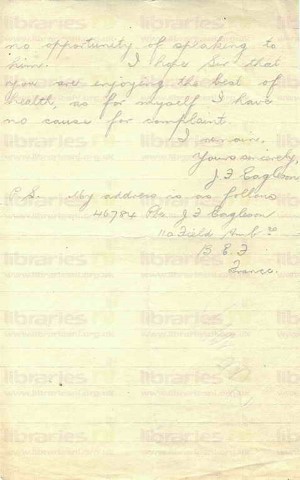 no opportunity of speaking to
him. I hope Sir that
you are enjoying the best of
health, as for myself I have
no cause for complaint.
I remain,
Yours sincerely,
J F Eagleson
P.S. My address is as follows
46784 Pte. J F Eagleson
110 Field Amb ce
B E F
France.